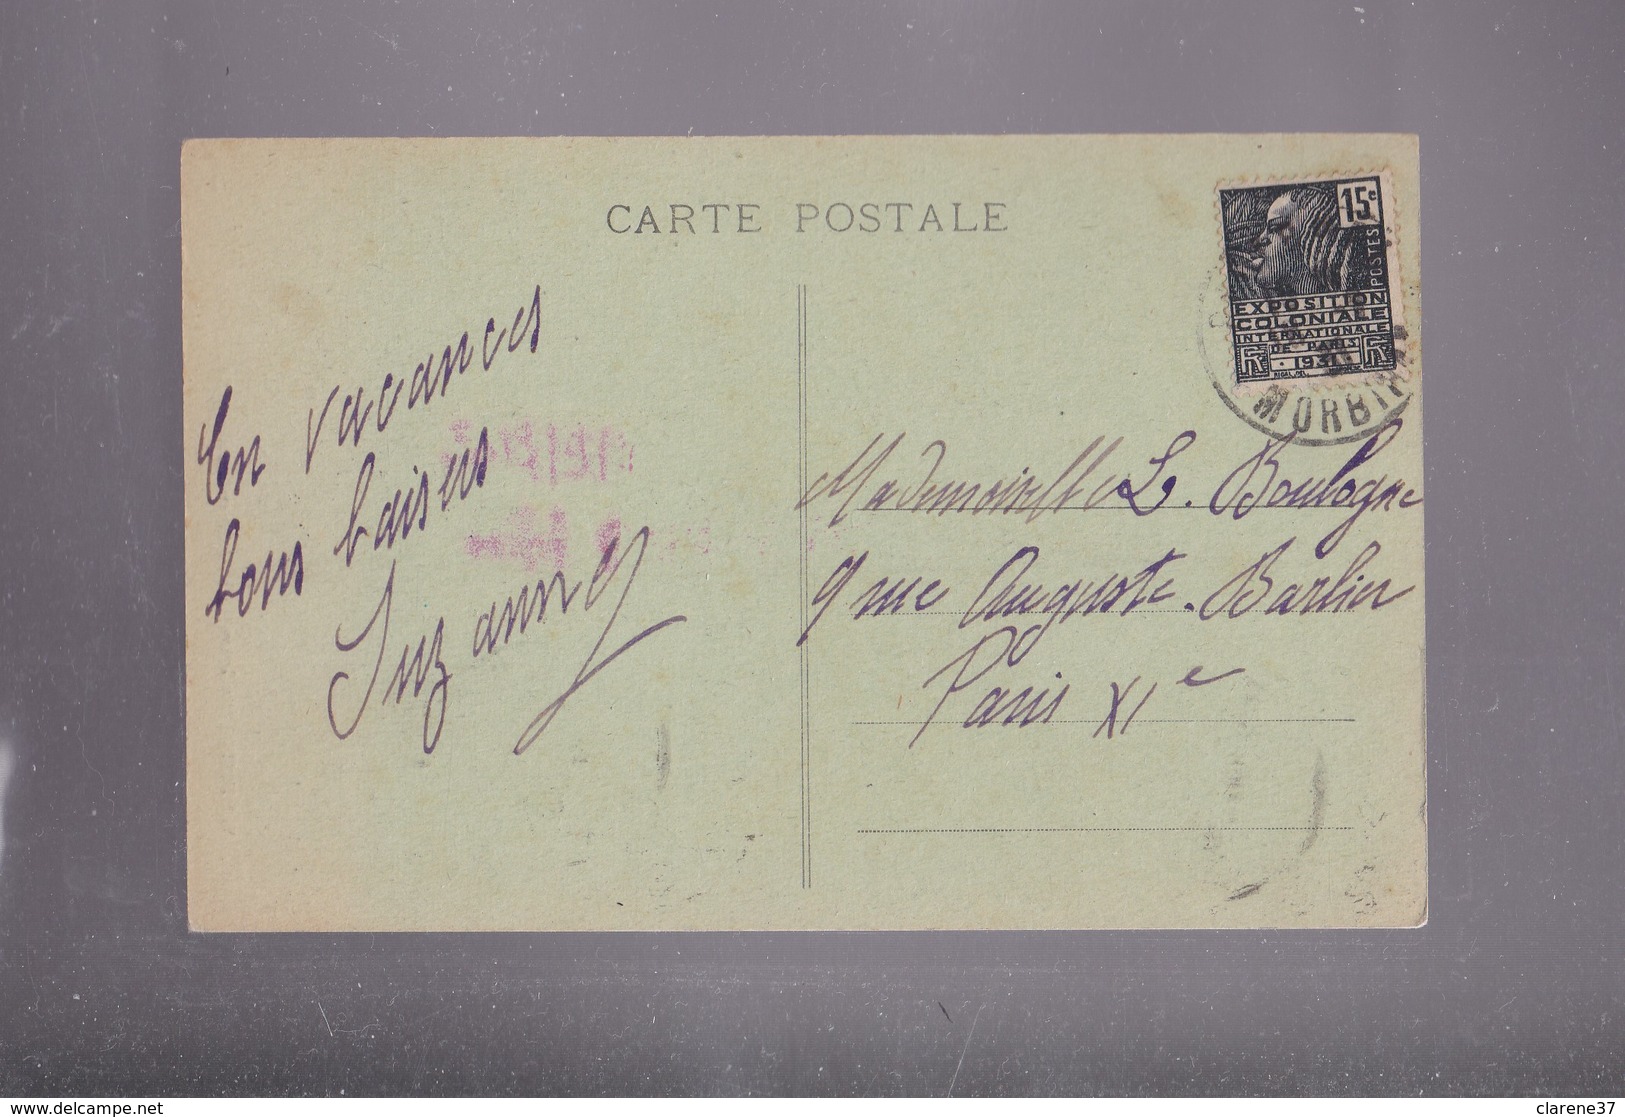 CARTE POSTALE
15c
POSTES
EXPOSITION
COLONIALE
INTERNATIONALE
DE PARIS
1931
RF RF
MORBIHAN
En vacances
bons baisers
Suzanne
Mademoiselle L. Boulogne
9 rue Auguste-Barbier
Paris XIe
www.delcampe.net
clarene37